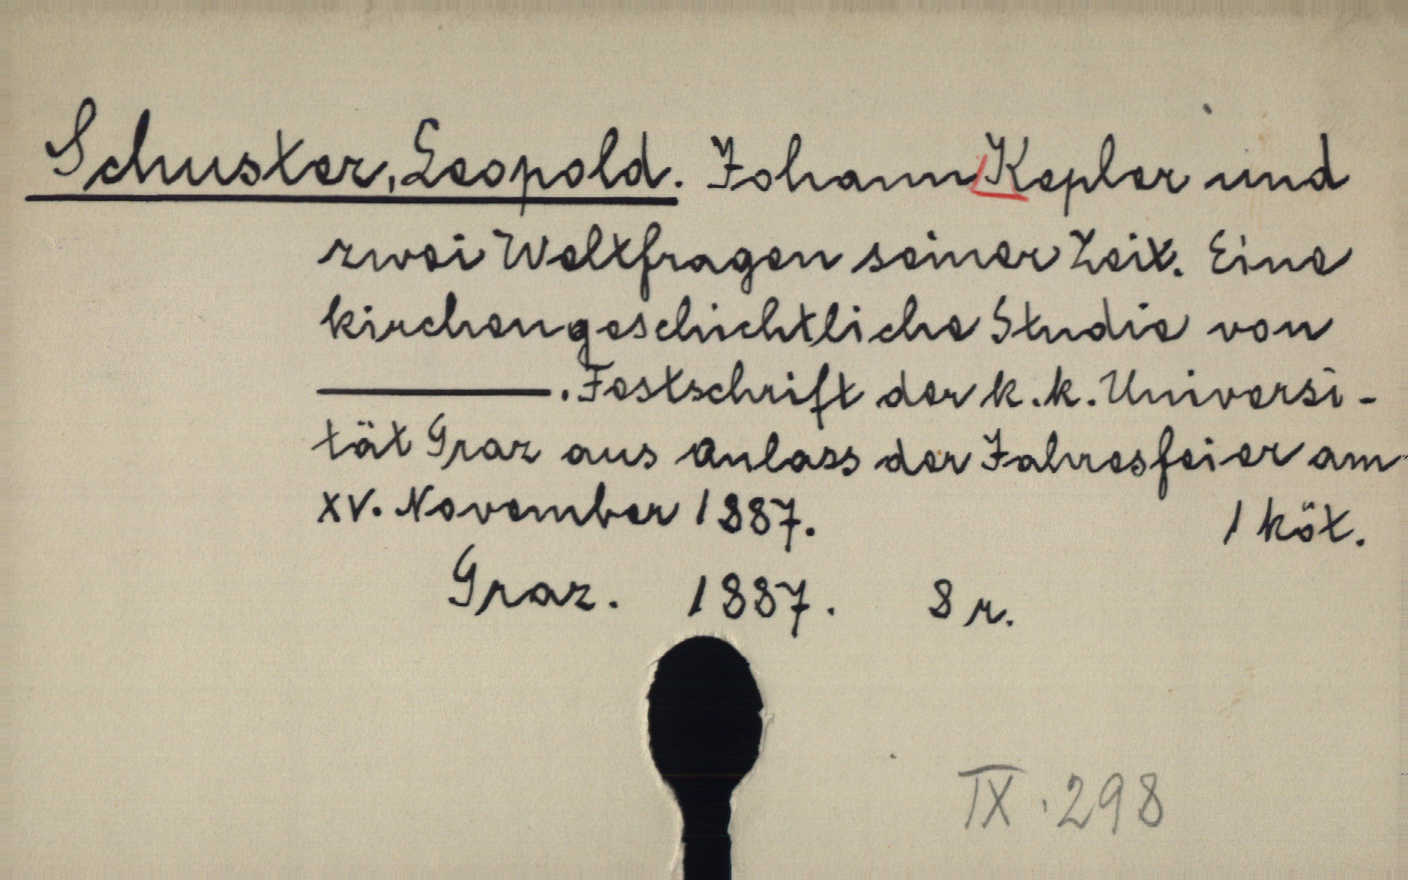 Schuster, Leopold. Johann Kepler und
zwei Weltfragen seiner Zeit. Eine
kirchengeschichtliche Studie von
———. Festschrift der k. k. Universi-
tät Graz aus Anlass der Jahresfeier am
XV. November 1887. 1 köt.
Graz. 1887. 8 r.
IX. 298